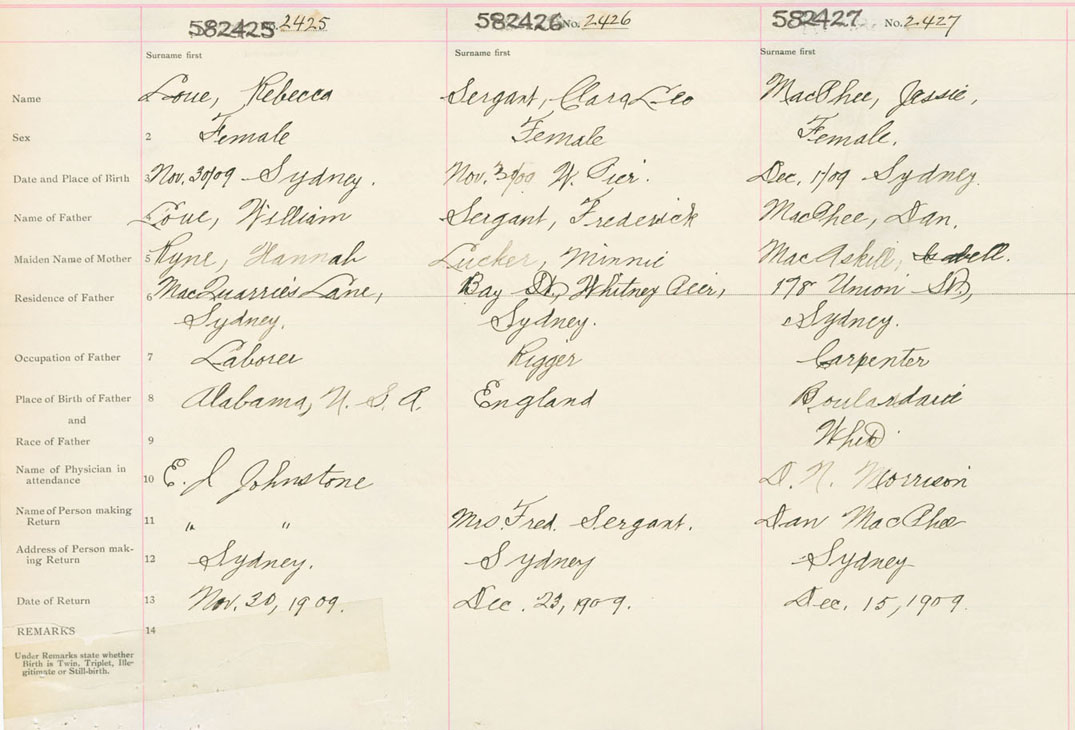 582425 No. 2425 582426 No. 2426 582427 No. 2427
Surname first Surname first Surname first
Name Love, Rebecca Sergant, Clara Leo MacPhee, Jessie,
Sex 2 Female Female Female.
Date and Place of Birth 3 Nov. 30/09 Sydney. Nov. W. Pier. Dec. 1/09 Sydney.
Name of Father 4 Love, William Sergant, Frederick MacPhee, Dan.
Maiden Name of Mother 5 Ryne, Hannah Tucker, Minnie MacAskill, Isabell.
Residence of Father 6 MacQuarrie's Lane, Bay St, Whitney Pier, 178 Union St,
Sydney. Sydney. Sydney.
Occupation of Father 7 Laborer Rigger Carpenter
Place of Birth of Father 8 Alabama, U. S. A. England Boulardarie
and
Race of Father 9 White
Name of Physician in
attendance 10 E. J Johnstone D. N. Morrison
Name of Person making
Return 11 " " Mrs. Fred. Sergant. Dan MacPhee
Address of Person mak-
ing Return 12 Sydney. Sydney Sydney
Date of Return 13 Nov. 30, 1909. Dec. 23, 1909. Dec. 15, 1909.
REMARKS 14
Under Remarks state whether
Birth is Twin, Triplet, Ille-
gitimate or Still-birth.